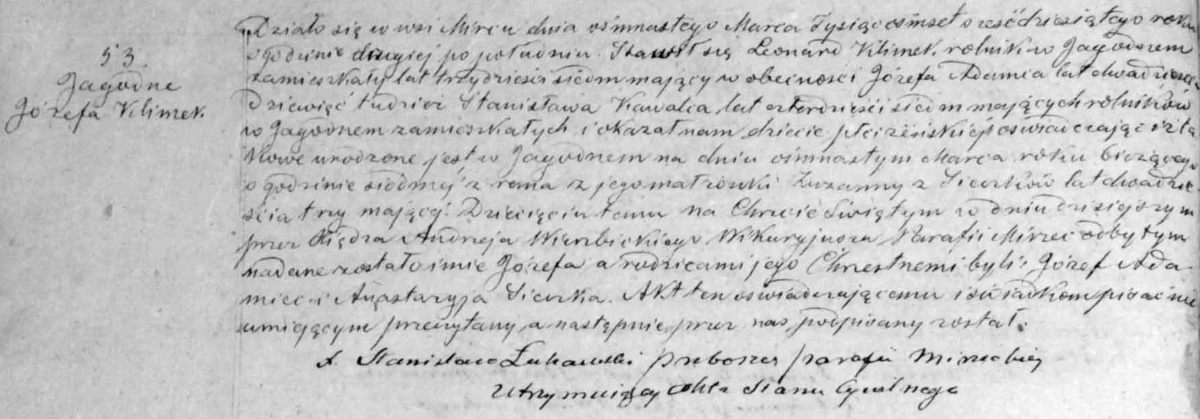 53.
Jagodne
Józefa Klimek.
Działo się we wsi Mircu dnia ośmnastego Marca Tysiąc ośmset sześćdziesiątego roku
o godzinie drugiej po południu. Stawił się Leonard Klimek rolnik w Jagodnem
zamieszkały lat trzydzieści siedm mający w obecności Józefa Adamca lat dwadzieścia
dziewięć tudzież Stanisława Kawalca lat czterdzieści siedm mających rolników
w Jagodnem zamieszkałych i okazał nam dziecie płci żeńskiej oświadczając iż ta
kowe urodzone jest w Jagodnem na dniu ośmnastym Marca roku bieżącego
o godzinie siodmej z rana z jego małżonki Zuzanny z Sieczków lat dwadzie
ścia trzy mającej. Dziecięciu temu na Chrzcie Świętym w dniu dzisiejszym
przez Księdza Andrzeja Wierzbickiego Wikaryjusza Parafii Mirzec odbytym
nadane zostało imie Józefa a rodzicami jego Chrzestnemi byli: Józef Ada
miec i Anastazyja Sieczka. Akt ten oświadczającemu i świadkom pisać nie
umiejącym przeczytany a następnie przez nas podpisany został.
X. Stanisław Łukawski proboszcz parafii Mirzeckiej
Utrzymujący Akta Stanu Cywilnego